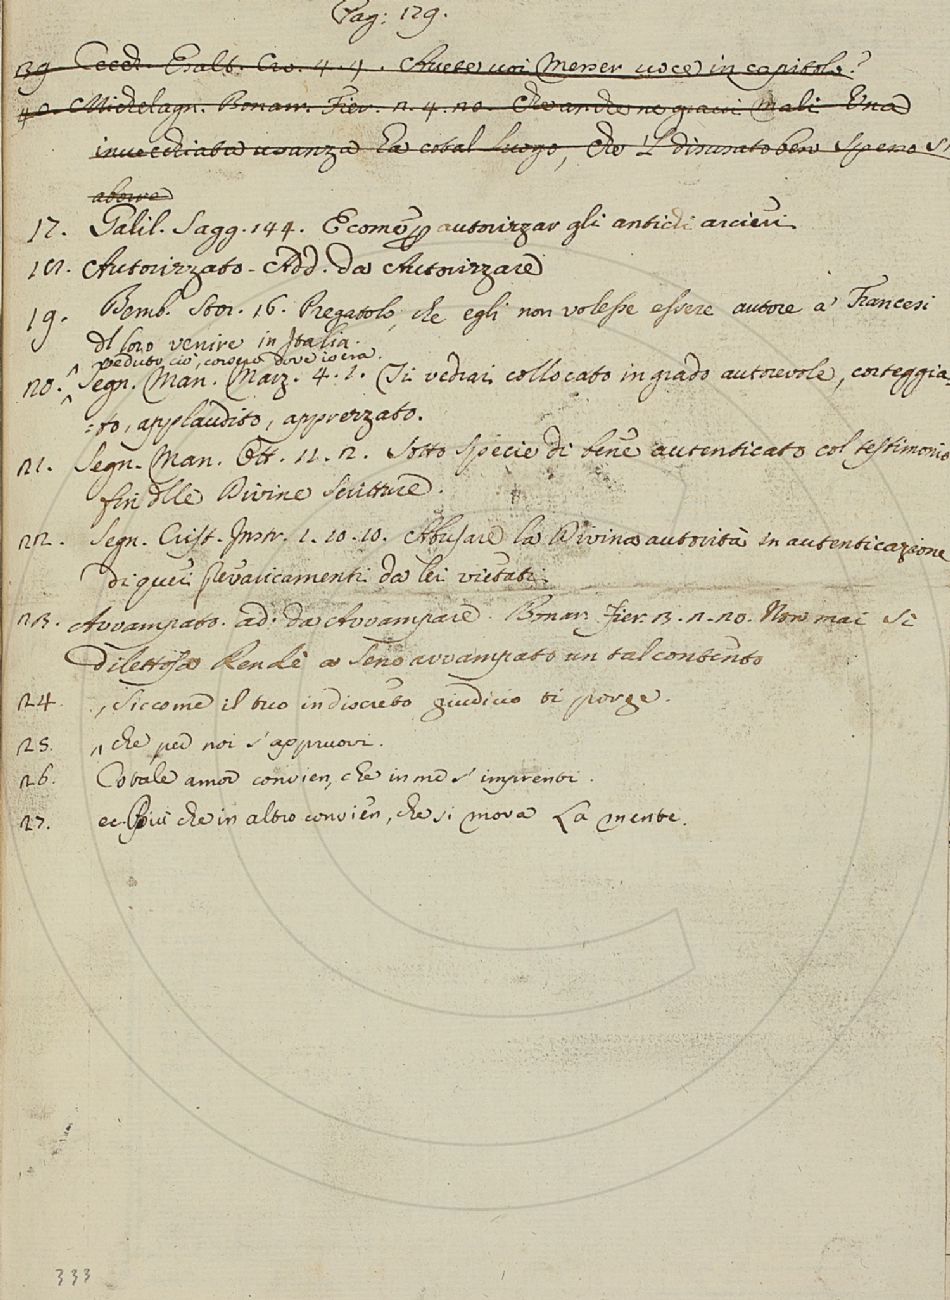 Pag: 129.
39 Cecch. Esalt. Cr. 4. 4. Avete voi Messer voce in capitolo?
40. Michelagn. Bonarr. Fier. 2. 4. 20. Che anche ne graci mali Una
invecchiata usanza Ea cotal luogo, che 'l disusato ben spesso s'
aborre
17. Galil. Sagg. 144. E come p autorizzar gli antichi arcieri.
18. Autorizzato. Add. da Autorizzare
19. Bemb. Stor. 16. Pregatolo, che egli non volesse essere autore a' Francesi
dl loro venire in Italia.
veduto ciò, conosco dove io era.
20. Segn. Man. Marz. 4. 1. Ti vedrai collocato in grado autorevole, corteggia-
=to, applaudito, apprezzato.
21. Segn. Man. Ott. 11. 2. Sotto specie di bene autenticato col testimonio
fin dlle Divine Scritture.
22. Segn. Crist. Instr. 1. 20. 10. Abusare la Divina autorità in autenticazione
di quei prevaricamenti da lei vietati.
23. Avvampato. ad. da Avvampare. Bonar. Fier. 3. 2. 20. Non mai sì
dilettosa Rendè a seno avvampato un tal contento
24. , siccome il tuo indiscreto giudicio ti porge.
25. , che per noi s'appruovi.
26. Cotale amor convien, che in me s' imprenti.
27. ec. Più che in altro convien, che si mova La mente.
333